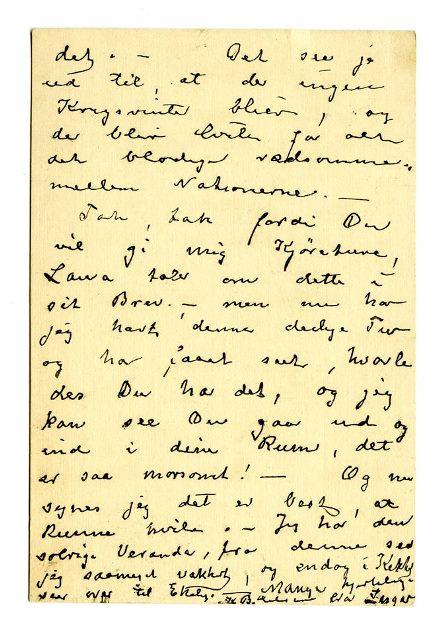 det. — Det ser jo
ud til, at der ingen
Krigsvinter bliver, og
der bliver hvile for alt
det blodige rædsomme
mellem Nationerne. —
Tak, tak fordi Du
vil gi mig Kjøreture,
Laura taler om dette i
sit Brev. — men nu har
jeg havt denne deilige Tur
og har faaet seet, hvorle
des Du har det, og jeg
kan see Du gaar ud og
ind i dine Rum, det
er saa morsomt! — Og nu
synes jeg det er bedst, at
Rumme hvile. — Jeg har den
solrige Veranda, fra denne ser
jeg saameget vakkert, og endog i Kikkert
ser over til Ekely. Mange hjertelige
fra Inger